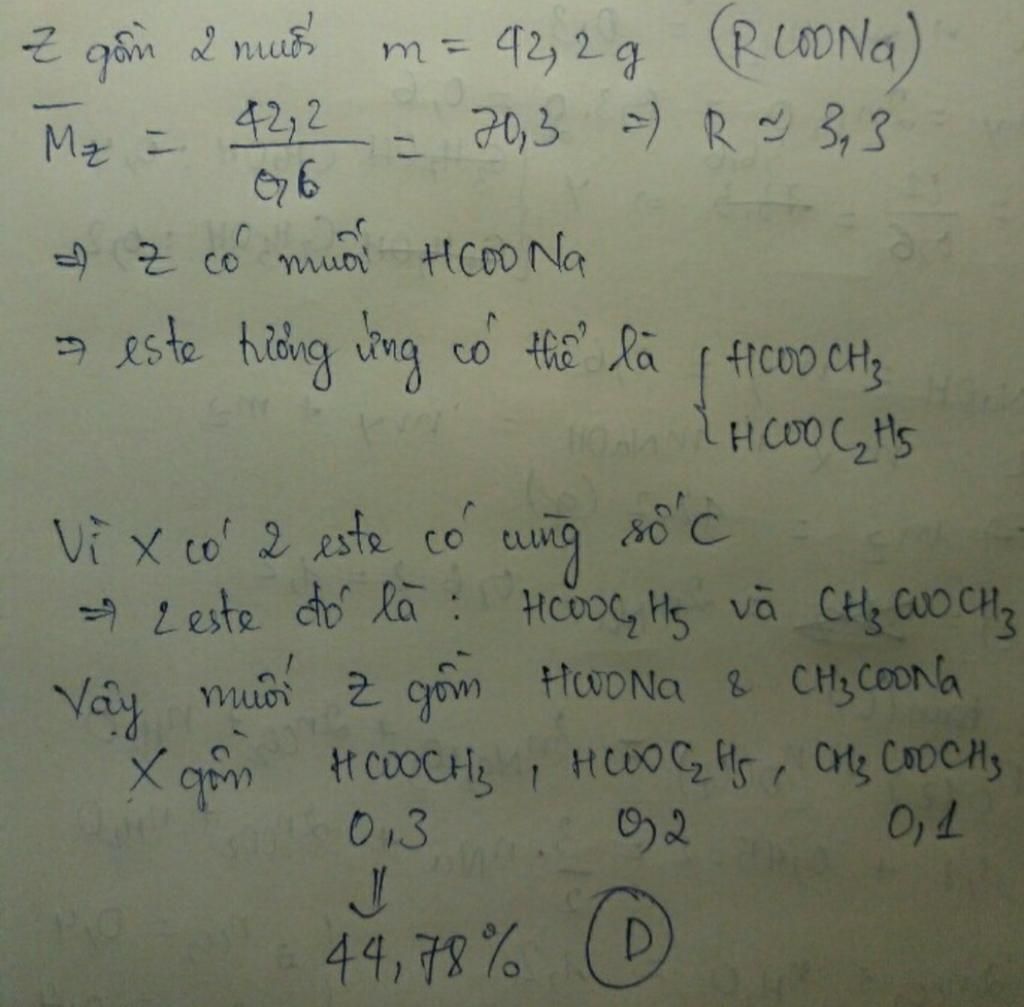 Z gồm 2 muối m = 42,2g (RCOONa)
M̅z = 42,2 / 0,6 = 70,3 => R ≈ 3,3
=> Z có muối HCOONa
=> este tương ứng có thể là { HCOOCH3
HCOOC2H5
Vì X có 2 este có cùng số C
=> 2 este đó là : HCOOC2H5 và CH3COOCH3
Vậy muối Z gồm HCOONa & CH3COONa
X gồm HCOOCH3 , HCOOC2H5 , CH3COOCH3
0,3 0,2 0,1
⇓
44,78% (D)